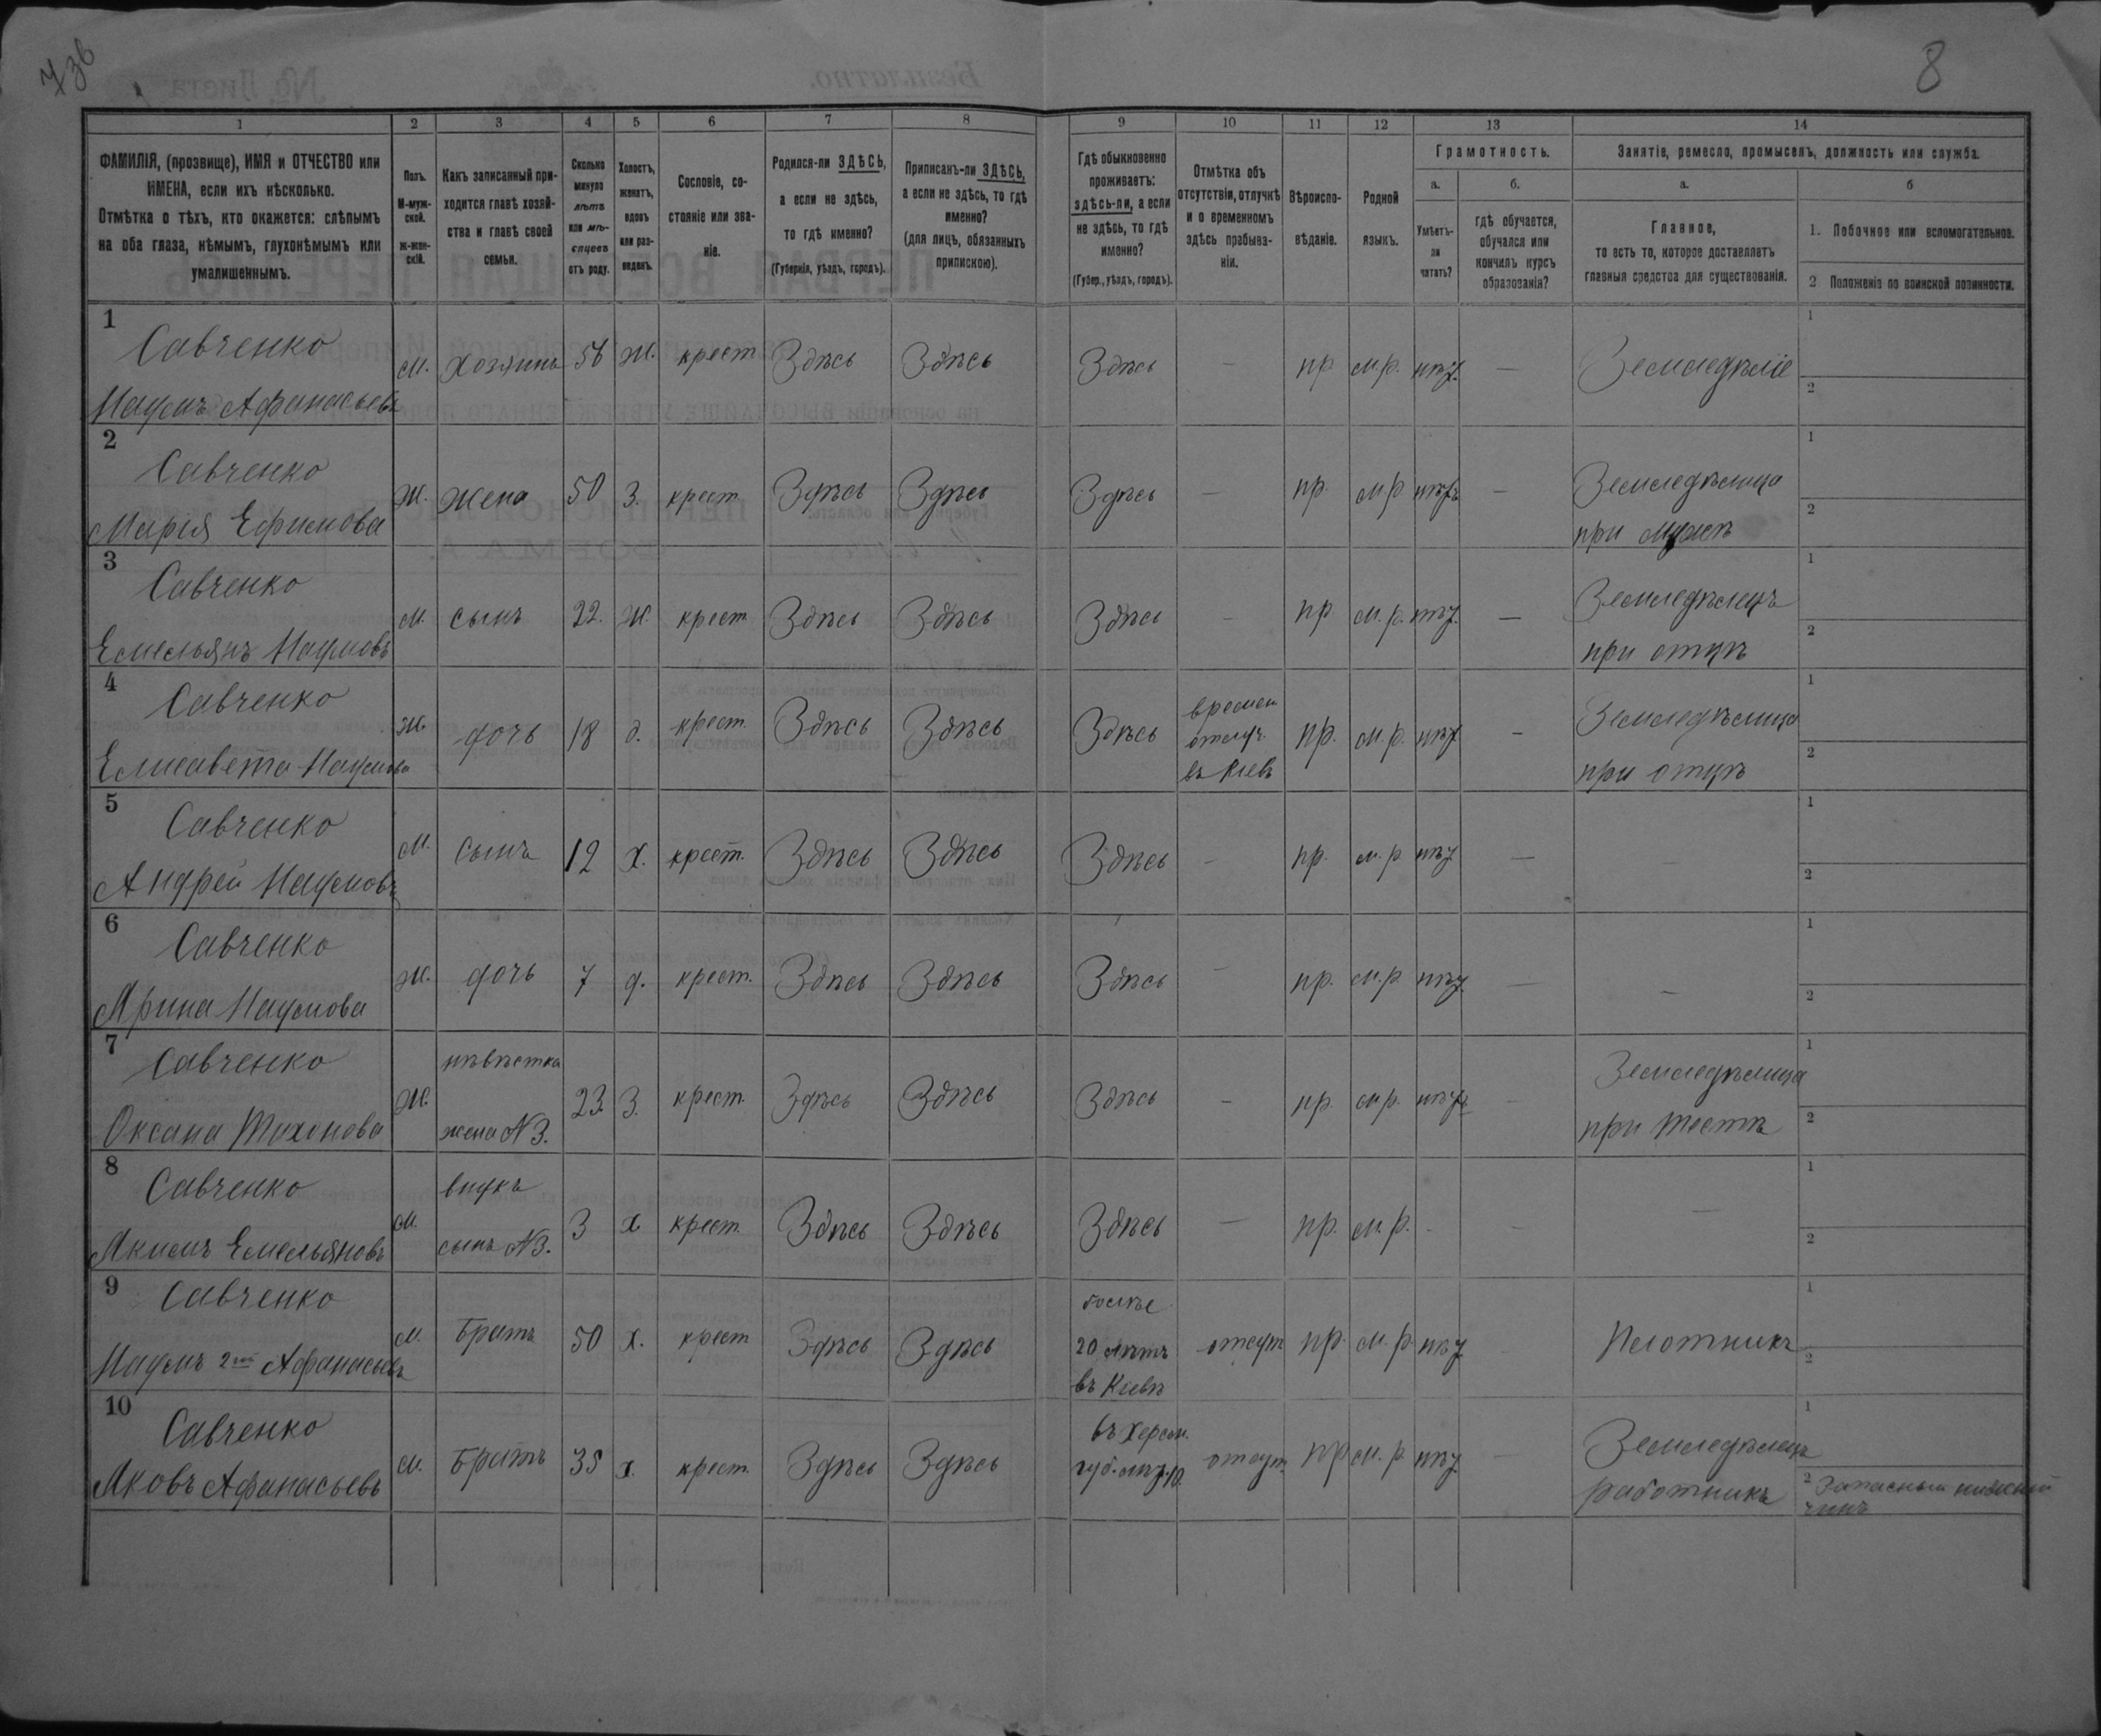 736
8
1 2 3 4 5 6 7 8 9 10 11 12 13 14
ФАМИЛІЯ, (прозвище), ИМЯ и ОТЧЕСТВО или
ИМЕНА, если ихъ нѣсколько.
Отмѣтка о тѣхъ, кто окажется: слѣпымъ
на оба глаза, нѣмымъ, глухонѣмымъ или
умалишеннымъ.
Полъ.
М-муж-
ской.
ж-жен-
скій.
Какъ записанный при-
ходится главѣ хозяй-
ства и главѣ своей
семьи.
Сколько
минуло
лѣтъ
или мѣ-
сяцевъ
отъ роду.
Холостъ,
женатъ,
вдовъ
или раз-
веденъ.
Сословіе, со-
стояніе или зва-
ніе.
Родился-ли ЗДѢСЬ,
а если не здѣсь,
то гдѣ именно?
(Губернія, уѣздъ, городъ).
Приписанъ-ли ЗДѢСЬ,
а если не здѣсь, то гдѣ
именно?
(для лицъ, обязанныхъ
припискою).
Гдѣ обыкновенно
проживаетъ:
здѣсь-ли, а если
не здѣсь, то гдѣ
именно?
(Губер., уѣздъ, городъ).
Отмѣтка объ
отсутствіи, отлучкѣ
и о временномъ
здѣсь пребыва-
ніи.
Вѣроиспо-
вѣданіе.
Родной
языкъ.
Грамотность.
а. б.
Умѣетъ-
ли
читать?
гдѣ обучается,
обучался или
кончилъ курсъ
образованія?
Занятіе, ремесло, промыселъ, должность или служба.
а. б
Главное,
то есть то, которое доставляетъ
главныя средства для существованія.
1. Побочное или вспомогательное.
2 Положеніе по воинской повинности.
1
Савченко
Наумъ Афанасьевъ
м. хозяинъ 56 ж. крест Здѣсь Здѣсь Здѣсь — пр м.р. нѣт. — Земледѣліе
1
2
2
Савченко
Марія Ефимова
ж. жена 50 з. крест Здѣсь Здѣсь Здѣсь — пр. м.р нѣтъ —
Земледѣлица
при мужѣ
1
2
3
Савченко
Емельянъ Наумовъ
м. сынъ 22. ж. крест Здѣсь Здѣсь Здѣсь — пр. м.р. нѣт. —
Земледѣлецъ
при отцѣ
1
2
4
Савченко
Елисавета Наумова
ж. дочь 18 д. крест Здѣсь Здѣсь Здѣсь
времен
отлуч.
въ Кіевъ
пр. м.р. нѣт —
Земледѣлица
при отцѣ
1
2
5
Савченко
Андрей Наумовъ
м. сынъ 12 х. крест. Здѣсь Здѣсь Здѣсь — пр. м.р нѣт —
1
2
6
Савченко
Арина Наумова
ж. дочь 7 д. крест. Здѣсь Здѣсь Здѣсь — пр. м.р. нѣт. — —
1
2
7
Савченко
Оксана Тихонова
ж.
невѣстка
жена N 3.
23. З. крест Здѣсь Здѣсь Здѣсь — пр. м.р. нѣтъ —
Земледѣлица
при тестѣ
1
2
8
Савченко
Акимъ Емельяновъ
м.
внукъ
сынъ N 3.
3 х крест. Здѣсь Здѣсь Здѣсь — пр. м.р. - — —
1
2
9
Савченко
Наумъ 2ой Афанасьевъ
м. Братъ 50 х. крест Здѣсь Здѣсь
болѣе
20 лѣтъ
въ Кіевѣ
отсут пр. м.р. нѣт Плотникъ
1
2
10
Савченко
Яковъ Афанасьевъ
м. Братъ 35 х. крест. Здѣсь Здѣсь
въ Херсон.
губ. лѣт. 10.
отсут. пр м.р. нѣт. —
Земледѣлецъ
работникъ
1
2 Запасный нижній
чинъ